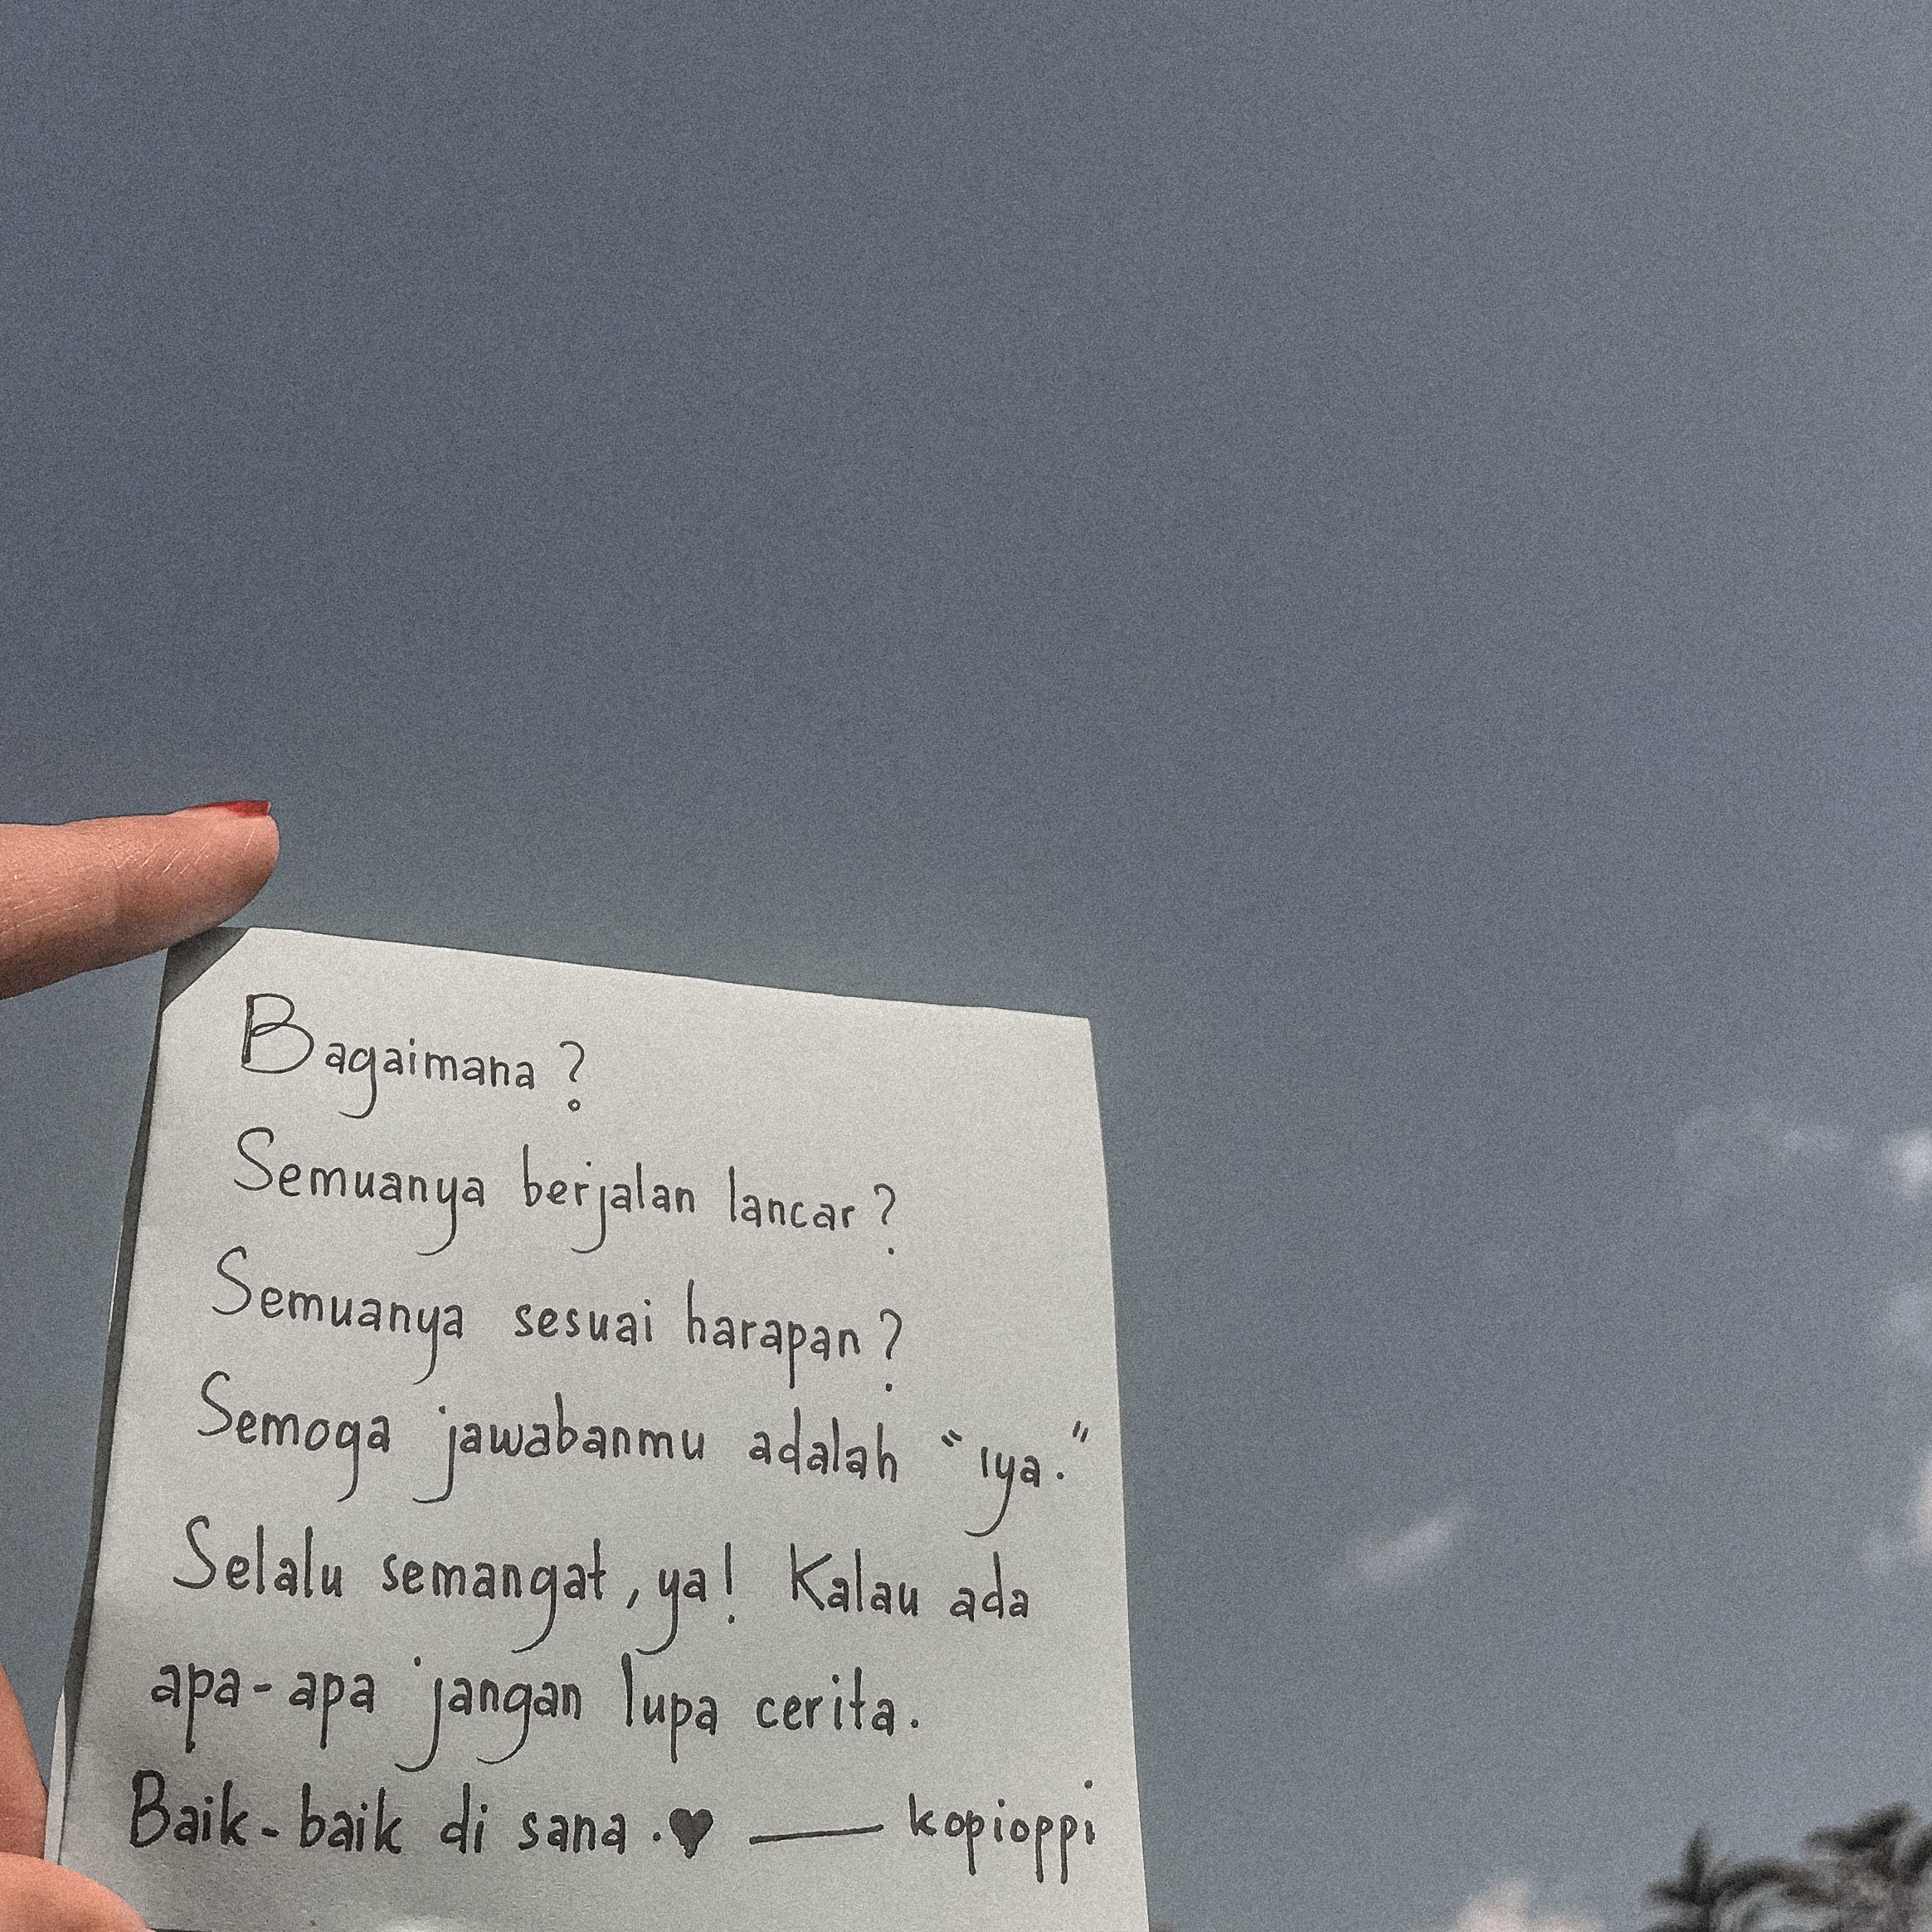 Bagaimana?
Semuanya berjalan lancar?
Semuanya sesuai harapan?
Semoga jawabanmu adalah "iya."
Selalu semangat, ya! Kalau ada
apa-apa jangan lupa cerita.
Baik-baik di sana.♥ — kopioppi